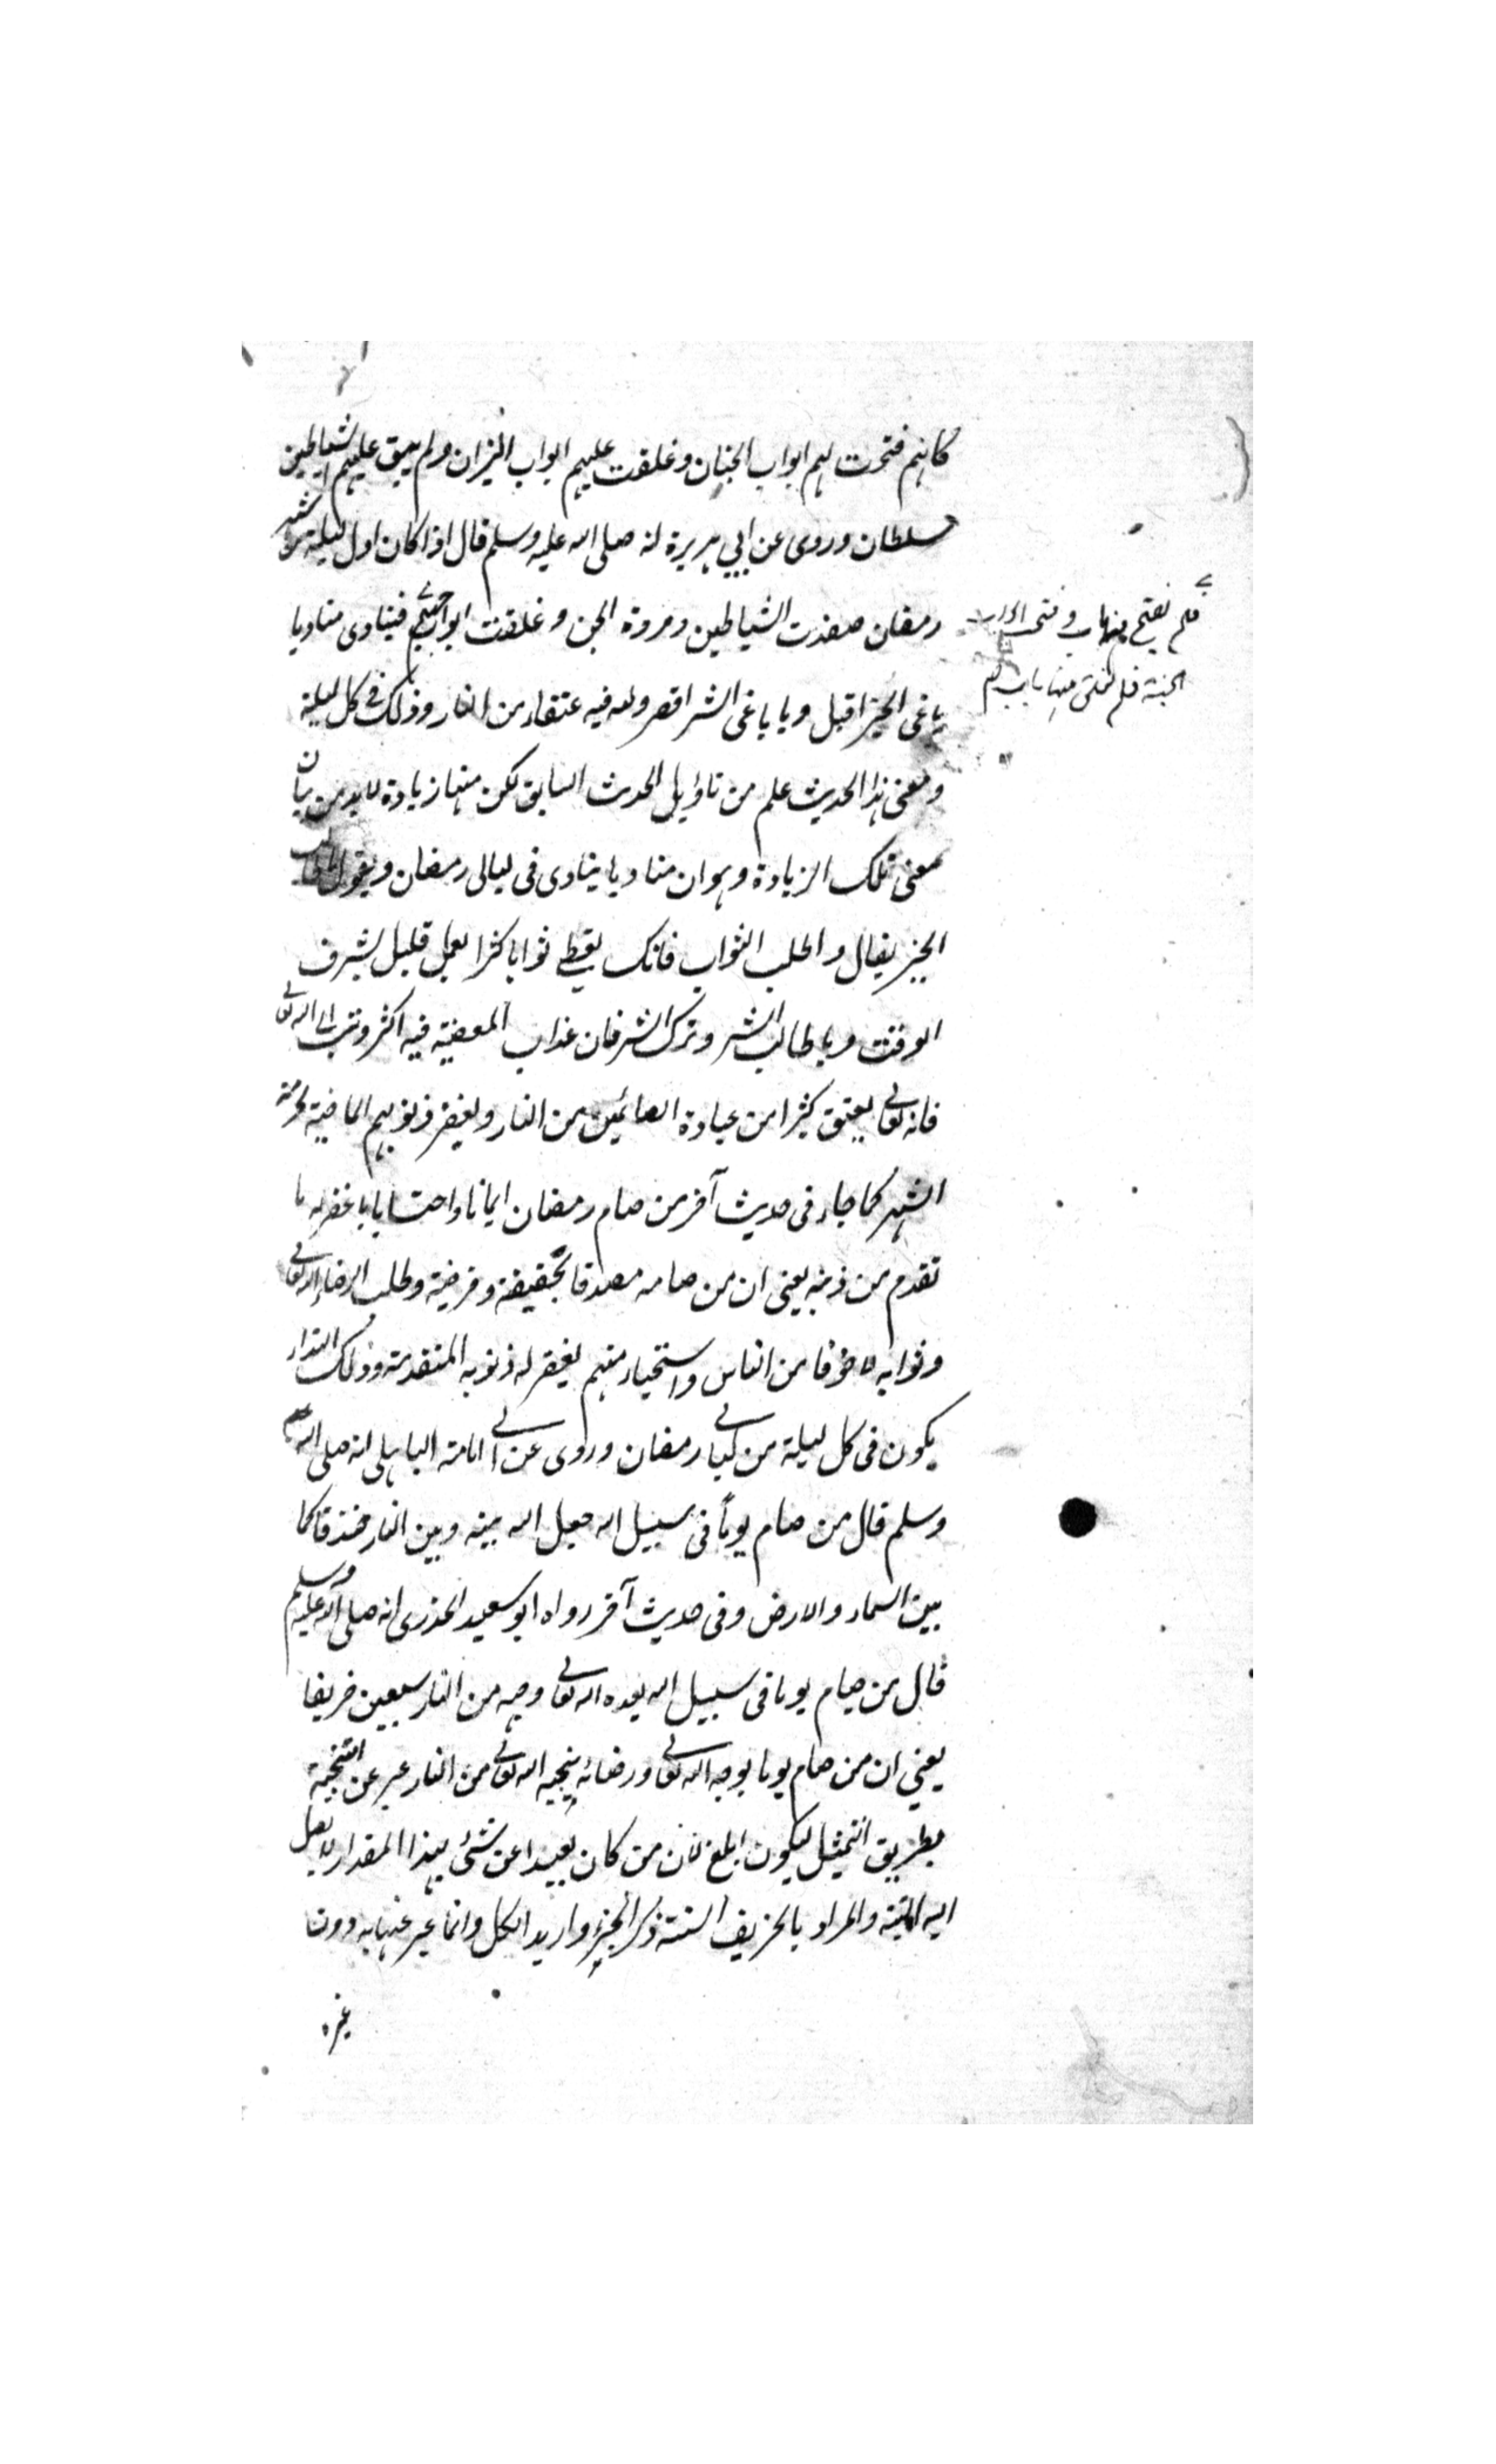 كانهم فتحت لهم ابواب الجنان وغلقت عليهم ابواب النيران ولم يبق عليهم الشياطين
سلطان وروى عن ابي هريرة انه صلى الله عليه وسلم قال اذا كان اول ليلة من شهر
رمضان صفدت الشياطين ومردة الجن وغلقت ابواب جهنم فينادى مناد يا
فلم يفتح منها باب وفتحت ابواب
الجنة فلم يغلق منها باب
باغى الخير اقبل ويا باغى الشر اقصر ولله فيه عتقاء من النار وذلك فى كل ليلة
ومعنى هذا الحديث علم من تاؤيل الحدث السابق لكن منها زيادة لابد من بيان
معنى تلك الزيادة وهو ان مناديا ينادى فى ليالى رمضان ويقول يا طالب
الخير يقال واطلب الثواب فانك يقطى ثوابا كثرا بعمل قليل بشرف
الوقت ويا طالب الشر وترك الشر فان عذاب المعصية فيه اكثر وتتب الى الله تعالى
فانه تعالى يعتق كثيرا من عبادة الصائمين من النار ويغفر ذنوبهم الماضية لحرمة
الشهر كما جاء فى حديث آخر من صام رمضان ايمانا واحتسابا غفر له ما
تقدم من ذنبه يعنى ان من صامه مصدقا بحقيقة وفرضية وطلب الرضاء الله تعالى
وثوابه لا خوفا من الناس واستحياء منهم يغفر له ذنوبه المتقدمة وذلك النداء
يكون فى كل ليلة من ليالى رمضان وروى عن ابى امامة الباهلى انه صلى الله عليه
وسلم قال من صام يوماً فى سبيل الله جعل الله بينه وبين النار خندقا كما
بين السماء والارض وفى حديث آخر رواه ابو سعيد الخدرى انه صلى الله عليه وسلم
قال من صام يوما فى سبيل الله بعده الله تعالى وجهه من النار سبعين خريفا
يعني ان من صام يوما بوجه الله تعالى ورضائه ينجيه الله تعالى من النار عبر عن التنجية
بطريق التمثيل ليكون ابلغ لان من كان بعيدا عن شئ بهذا المقدار لا يصل
اليه البتة والمراد بالخريف السنة ذكر الجزء واريد الكل وانما عبر عنها به دون
غيره